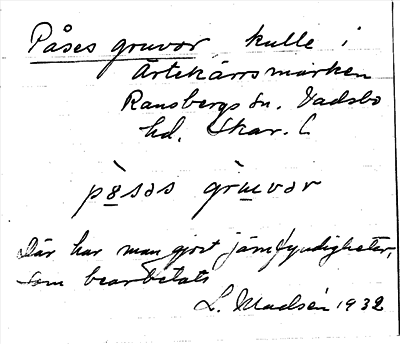 Påses gruvor, kulle i
Ärtekärrsmarken
Ransbergs sn. Vadsbo
hd. Skar. l
pò̱sas grù̱vor
Där har man gjort järnfyndigheter,
som bearbetats
L. Madsén 1932